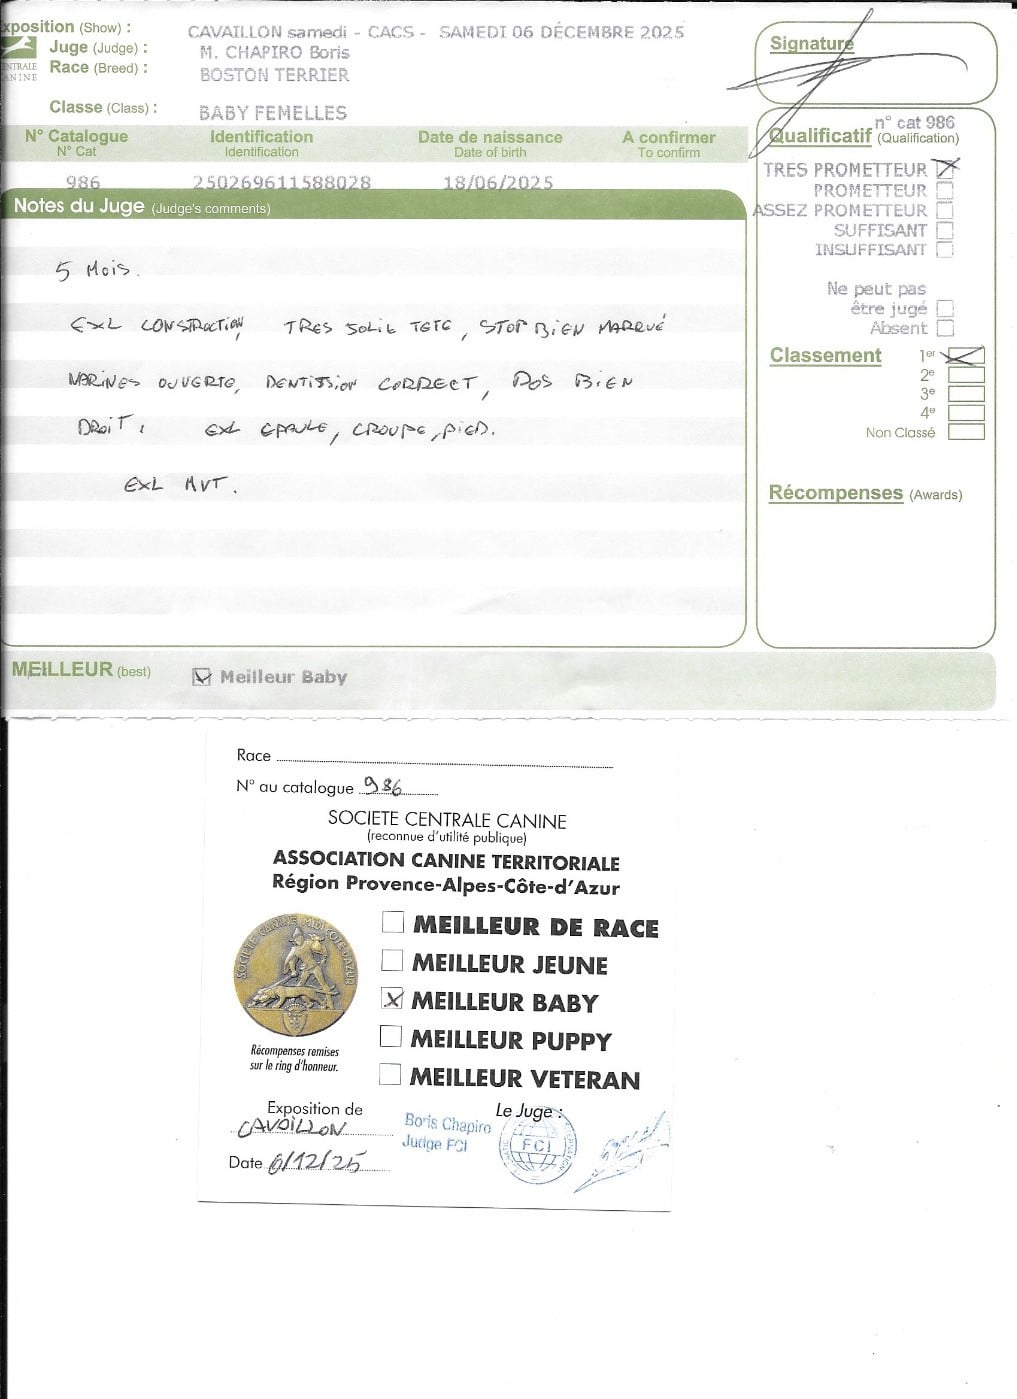 xposition (Show) : CAVAILLON samedi - CACS - SAMEDI 06 DÉCEMBRE 2025
Juge (Judge) : M. CHAPIRO Boris
Race (Breed) : BOSTON TERRIER
NTRALE
ANINE
Classe (Class) : BABY FEMELLES
N° Catalogue Identification Date de naissance A confirmer
N° Cat Identification Date of birth To confirm
986 250269611588028 18/06/2025
Notes du Juge (Judge's comments)
5 MOIS.
EXL CONSTRACTION, TRES JOLIE TETE, STOP BIEN MARQUÉ
NARINES OUVERTE, DENTISSION CORRECT, DOS BIEN
DROIT. EXL EPAULE, CROUPE, PIED.
EXL MVT.
Signature
n° cat 986
Qualificatif (Qualification)
TRES PROMETTEUR
PROMETTEUR
ASSEZ PROMETTEUR
SUFFISANT
INSUFFISANT
Ne peut pas
être jugé
Absent
Classement 1er
2e
3e
4e
Non Classé
Récompenses (Awards)
MEILLEUR (best) Meilleur Baby
Race
N° au catalogue 986
SOCIETE CENTRALE CANINE
(reconnue d'utilité publique)
ASSOCIATION CANINE TERRITORIALE
Région Provence-Alpes-Côte-d'Azur
SOCIÉTÉ CANINE MIDI CÔTE D'AZUR
MEILLEUR DE RACE
MEILLEUR JEUNE
MEILLEUR BABY
MEILLEUR PUPPY
MEILLEUR VETERAN
Récompenses remises
sur le ring d'honneur.
Exposition de CAVAILLON
Date 6/12/25
Le Juge :
Boris Chapiro
Judge FCI
FCI